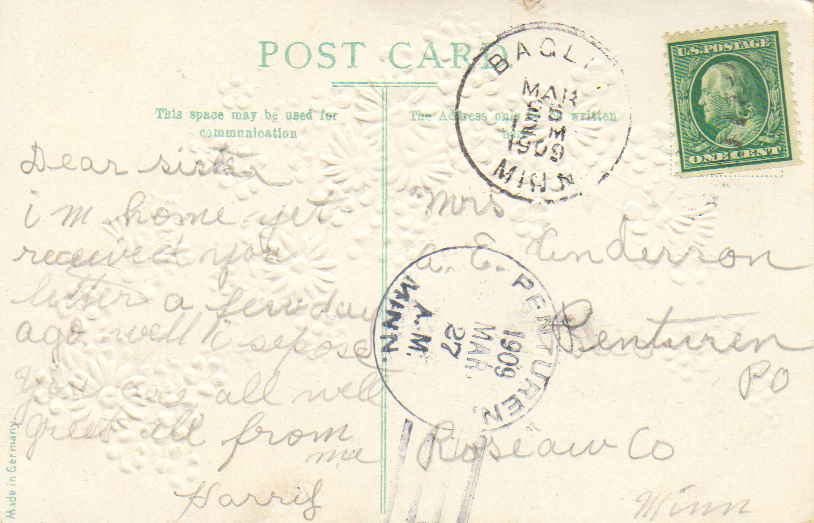 POST CARD
This space may be used for
communication
The Address only written
Dear sister
im home yet
received you
letter a few day
ago well i sepose
you are all well
greet all from
me
Harris
Mrs
a. E. Anderson
Penturen
PO
Roseauw Co
Minn
BAGL
MAR
1909
MINN
PENTUREN,
1909
MAR.
27
A.M.
MINN.
U.S. POSTAGE
ONE CENT
Made in Germany